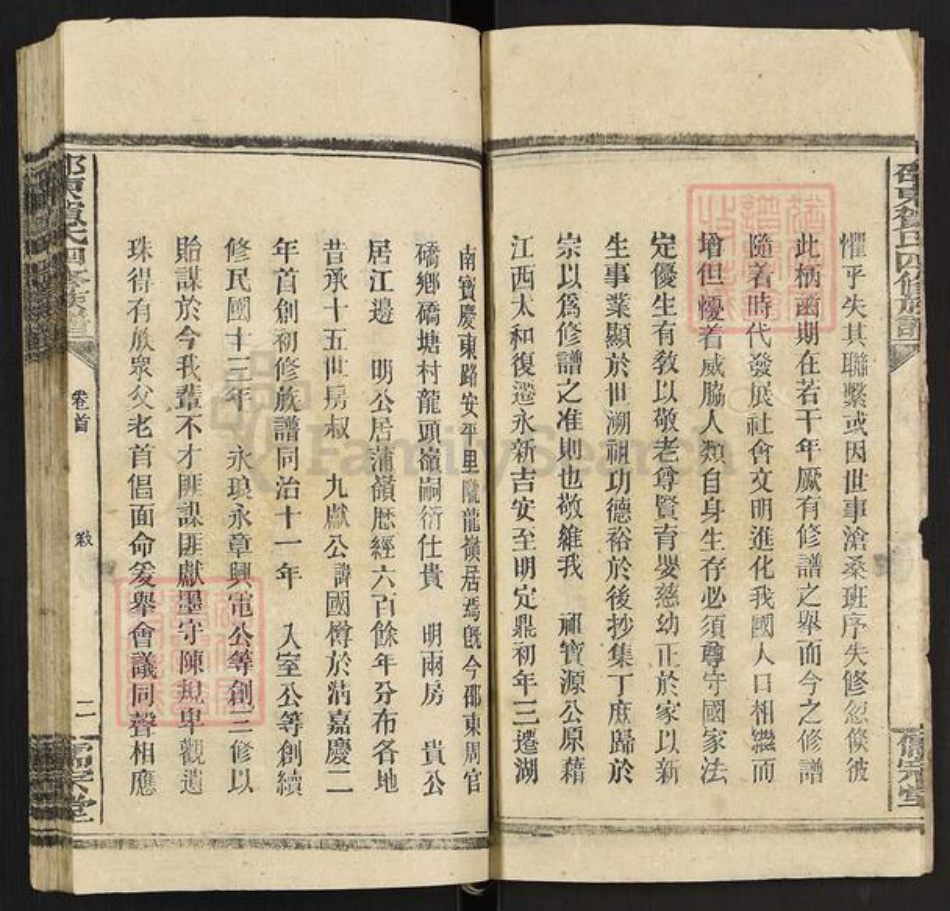 懼乎失其聯繫或因世事滄桑班序失修忽倏彼
此柄凾期在若干年厥有修譜之舉而今之修譜
隨着時代發展社會文明進化我國人口相繼而
增但懮着威脇人類自身生存必須尊守國家法
定優生有教以敬老尊賢育嬰慈幼正於家以新
生事業顯於世溯祖功德裕於後抄集丁庶歸於
宗以爲修譜之准則也敬維我 祖寶源公原藉
江西太和復遷永新吉安至明定鼎初年三遷湖
南寶慶東路安平里隴龍嶺居焉旣今邵東周官
礄鄉礄塘村龍頭嶺嗣衍仕貴 明兩房 貴公
居江邊 明公居蒲嶺歷經六百餘年分布各地
昔承十五世房叔 九獻公諱國樽於清嘉慶二
年首創初修族譜同治十一年 入室公等創續
修民國十三年 永琅永章興電公等創三修以
貽謀於今我輩不才匪謀匪獻墨守陳規卑觀遺
珠得有族衆父老首倡面命爰舉會議同聲相應
卷首
二
FamilySearch